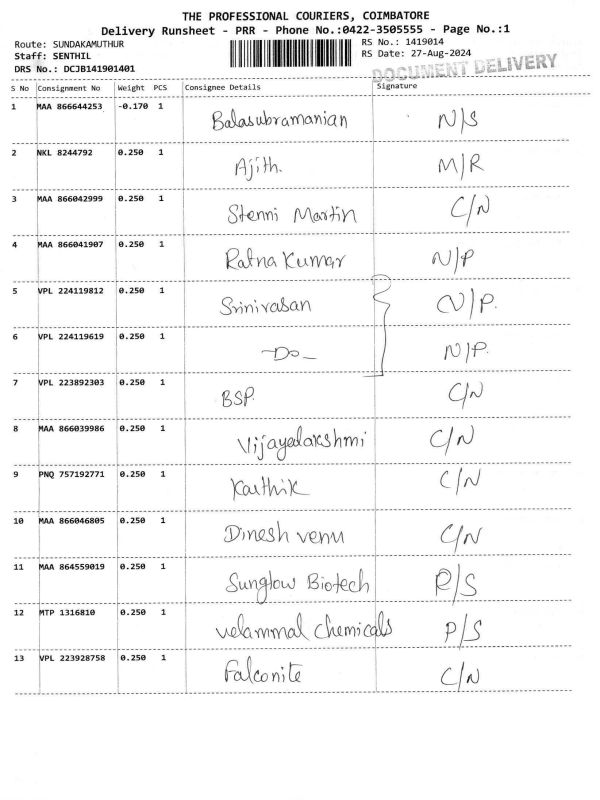 THE PROFESSIONAL COURIERS, COIMBATORE
Delivery Runsheet - PRR - Phone No.:0422-3505555 - Page No.:1
Route: SUNDAKAMUTHUR RS No.: 1419014
Staff: SENTHIL RS Date: 27-Aug-2024
DRS No.: DCJB141901401 DOCUMENT DELIVERY
S No Consignment No Weight PCS Consignee Details Signature
1 MAA 866644253 -0.170 1 Balasubramanian N/S
2 NKL 8244792 0.250 1 Ajith. M/R
3 MAA 866042999 0.250 1 Stenni Martin C/N
4 MAA 866041907 0.250 1 Ratna Kumar N/P
5 VPL 224119812 0.250 1 Srinivasan N/P.
6 VPL 224119619 0.250 1 -Do- N/P.
7 VPL 223892303 0.250 1 BSP. C/N
8 MAA 866039986 0.250 1 Vijayalakshmi C/N
9 PNQ 757192771 0.250 1 Karthik C/N
10 MAA 866046805 0.250 1 Dinesh venu C/N
11 MAA 864559019 0.250 1 Sunglow Biotech R/S
12 MTP 1316810 0.250 1 velammal chemicals P/S
13 VPL 223928758 0.250 1 Falconite C/N